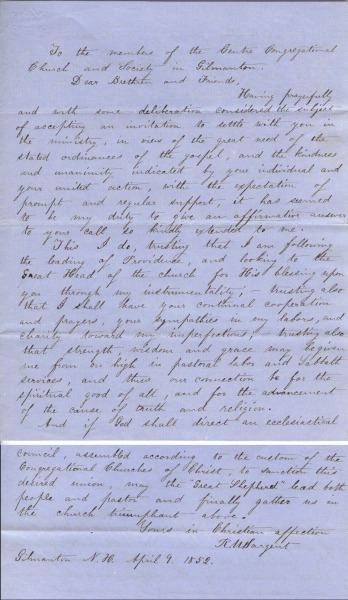 To the members of the Centre Congregational
Church and Society in Gilmanton.
Dear Brethren and Friends,
Having prayerfully
and with some deliberation considered the subject
of accepting an invitation to settle with you in
the ministry, in view of the great need of the
stated ordinances of the gospel, and the kindness
and unanimity indicated by your individual and
your united action, with the expectation of
prompt and regular support, it has seemed
to be my duty to give an affirmative answer
to your call so kindly extended to me.
This I do, trusting that I am following
the leading of Providence, and looking to the
Great Head of the church for His blessing upon
you through my instrumentality; – trusting also
that I shall have your continual cooperation
and prayers, your sympathies in my labors, and
charity toward my imperfections; – trusting also
that strength, wisdom and grace may be given
me from on high in pastoral labor and Sabbath
services, and thus our connection be for the
spiritual good of all, and for the advancement
of the cause of truth and religion.
And if God shall direct an ecclesiastical
council, assembled according to the custom of the
Congregational Churches of Christ, to sanction this
desired union, may the "Great Shepherd" lead both
people and pastor and finally gather us in
the church triumphant above.
Yours in Christian affection
Gilmanton N. H. April 9. 1852.